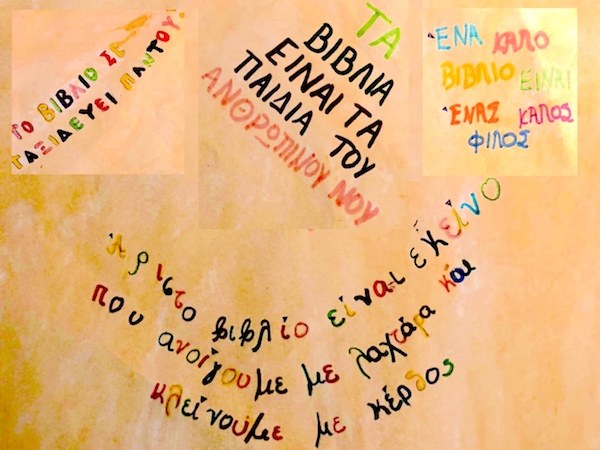 ΤΟ ΒΙΒΛΙΟ ΣΕ
ΤΑΞΙΔΕΥΕΙ ΠΑΝΤΟΥ!
ΤΑ
ΒΙΒΛΙΑ
ΕΙΝΑΙ ΤΑ
ΠΑΙΔΙΑ ΤΟΥ
ΑΝΘΡΩΠΙΝΟΥ ΝΟΥ
ΈΝΑ ΚΑΛΟ
ΒΙΒΛΙΟ ΕΙΝΑΙ
ΈΝΑΣ ΚΑΛΟΣ
ΦΙΛΟΣ
Άριστο βιβλίο είναι εκείνο
που ανοίγουμε με λαχτάρα και
κλείνουμε με κέρδος